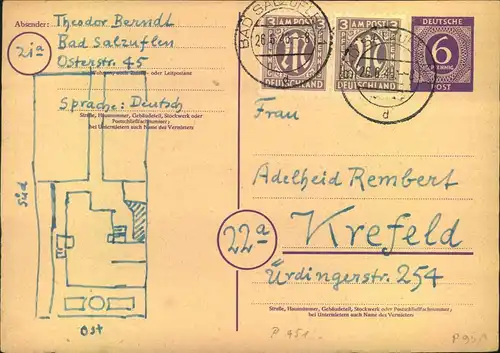 Absender: Theodor Berndt
21a Bad Salzuflen
Osterstr. 45
Wohnort, auch Zustell- oder Leitpostamt
Sprache: Deutsch
Straße, Hausnummer, Gebäudeteil, Stockwerk oder
Postschließfachnummer;
bei Untermietern auch Name des Vermieters
Süd
Ost
BAD SALZUFLEN
d
3 AM POST 3
DEUTSCHLAND
3 AM POST 3
DEUTSCHLAND
DEUTSCHE
6
PFENNIG
POST
Frau
Adelheid Rembert
22a Krefeld
Ürdingerstr. 254
Straße, Hausnummer, Gebäudeteil, Stockwerk oder Postschließfachnummer;
bei Untermietern auch Name des Vermieters
P 951